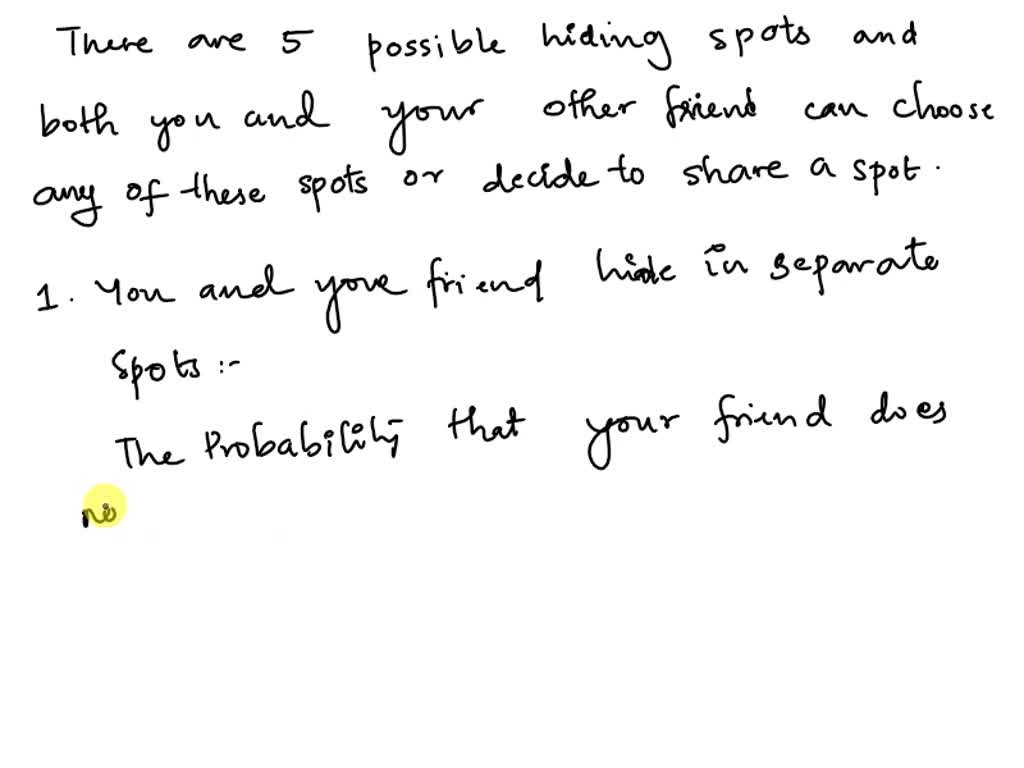 There are 5 possible hiding spots and
both you and your other friend can choose
any of these spots or decide to share a spot.
1. You and your friend hide in separate
Spots :-
The Probability that your friend does
no